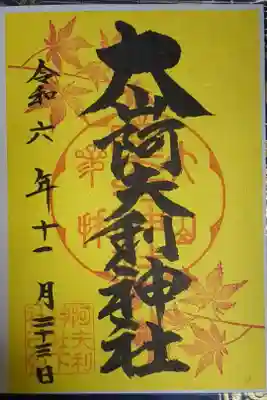 大山阿夫利神社
令和六年十一月二十三日
阿夫利
神社下